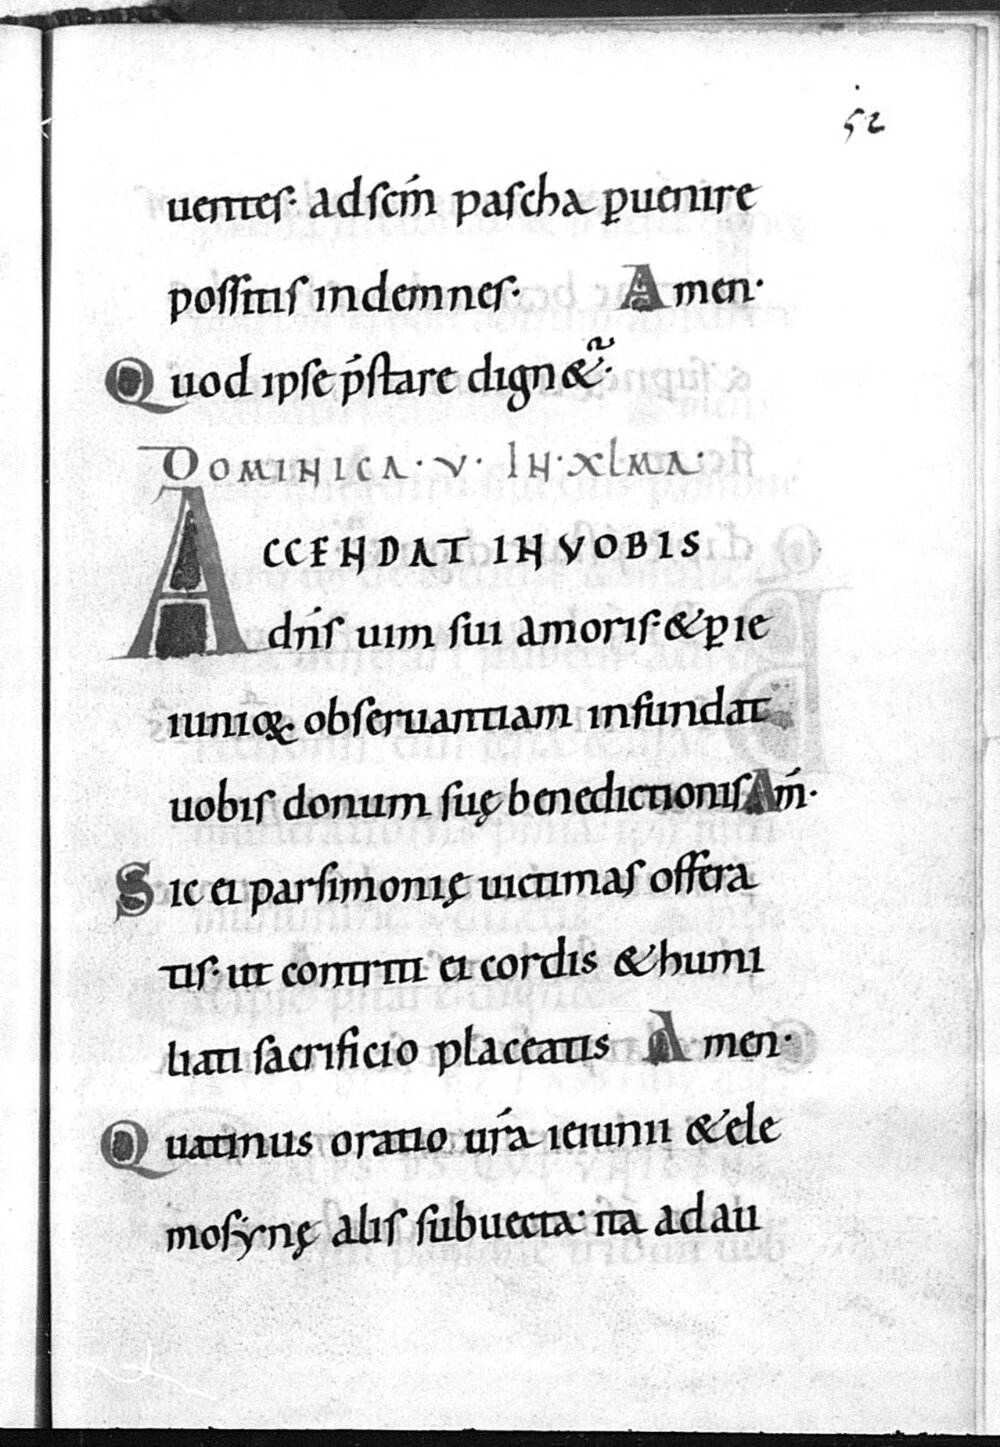 52
uentes· adscm̄ pascha ꝑuenire
possitis indemnes· Amen·
Quod ipse p̄stare dign&ur̃·
DOMINICA · V · IN · XLMA ·
ACCENDAT IN VOBIS
dn̄s uim sui amoris· & ꝑ ie
iunioꝝ obseruantiam infundat
uobis donum suę benedictionis Am̄·
Sic ei parsimonię uictimas offera
tis· ut contriti ei cordis & humi
liati sacrificio placeatis Amen·
Quatinus oratio ur̄a ieiunii & ele
mosẏnę alis subuecta· ita ad au